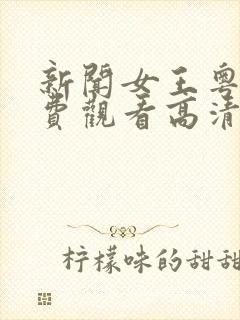 新聞女王粵
費觀看高清
柠檬味的甜甜